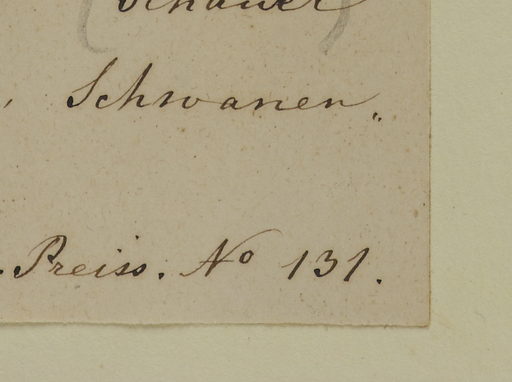 Schauer
, Schwanen„
. Preiss. No 131.